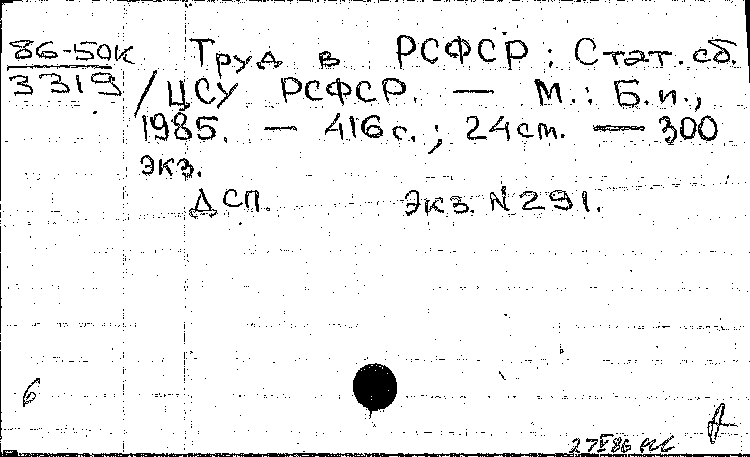 86-50к Труд в РСФСР : Стат. сб.
3319 / ЦСУ РСФСР. — М. : Б.и.,
1985. — 416 с. ; 24 cm. — 300
экз.
ДСП. Экз. N 291.
6
27 V 86